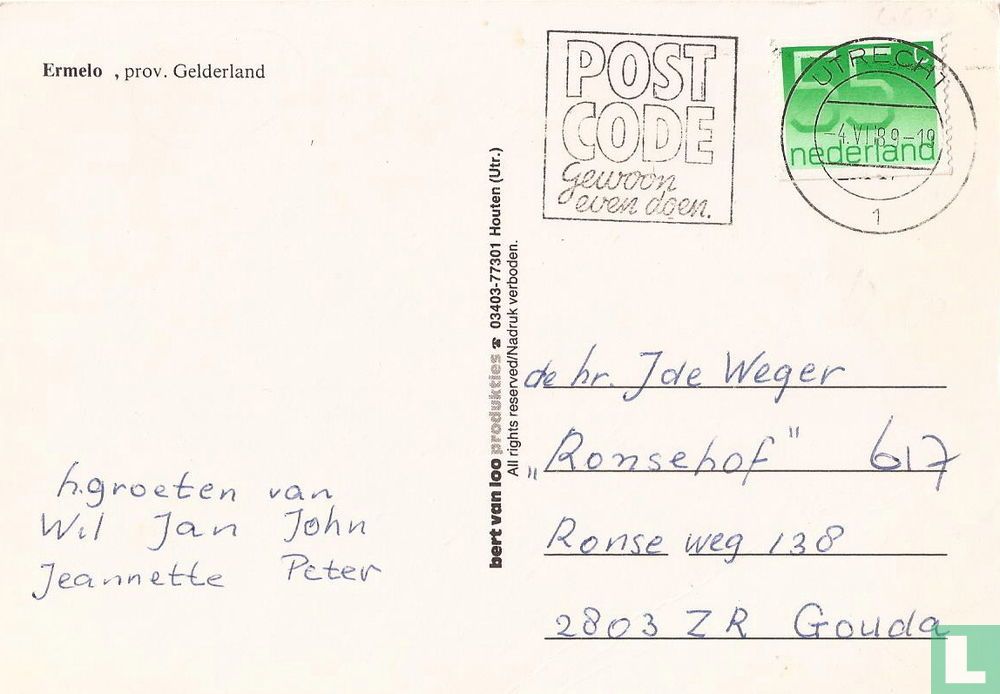 Ermelo , prov. Gelderland
POST
CODE
Gewoon
even doen.
UTRECHT
-4.VI.89-19
1
55 c
nederland
bert van loo produkties ☎ 03403-77301 Houten (Utr.)
All rights reserved/Nadruk verboden.
de hr. J de Weger
„Ronsehof" 617
Ronse weg 138
2803 ZR Gouda
h.groeten van
Wil Jan John
Jeannette Peter
L